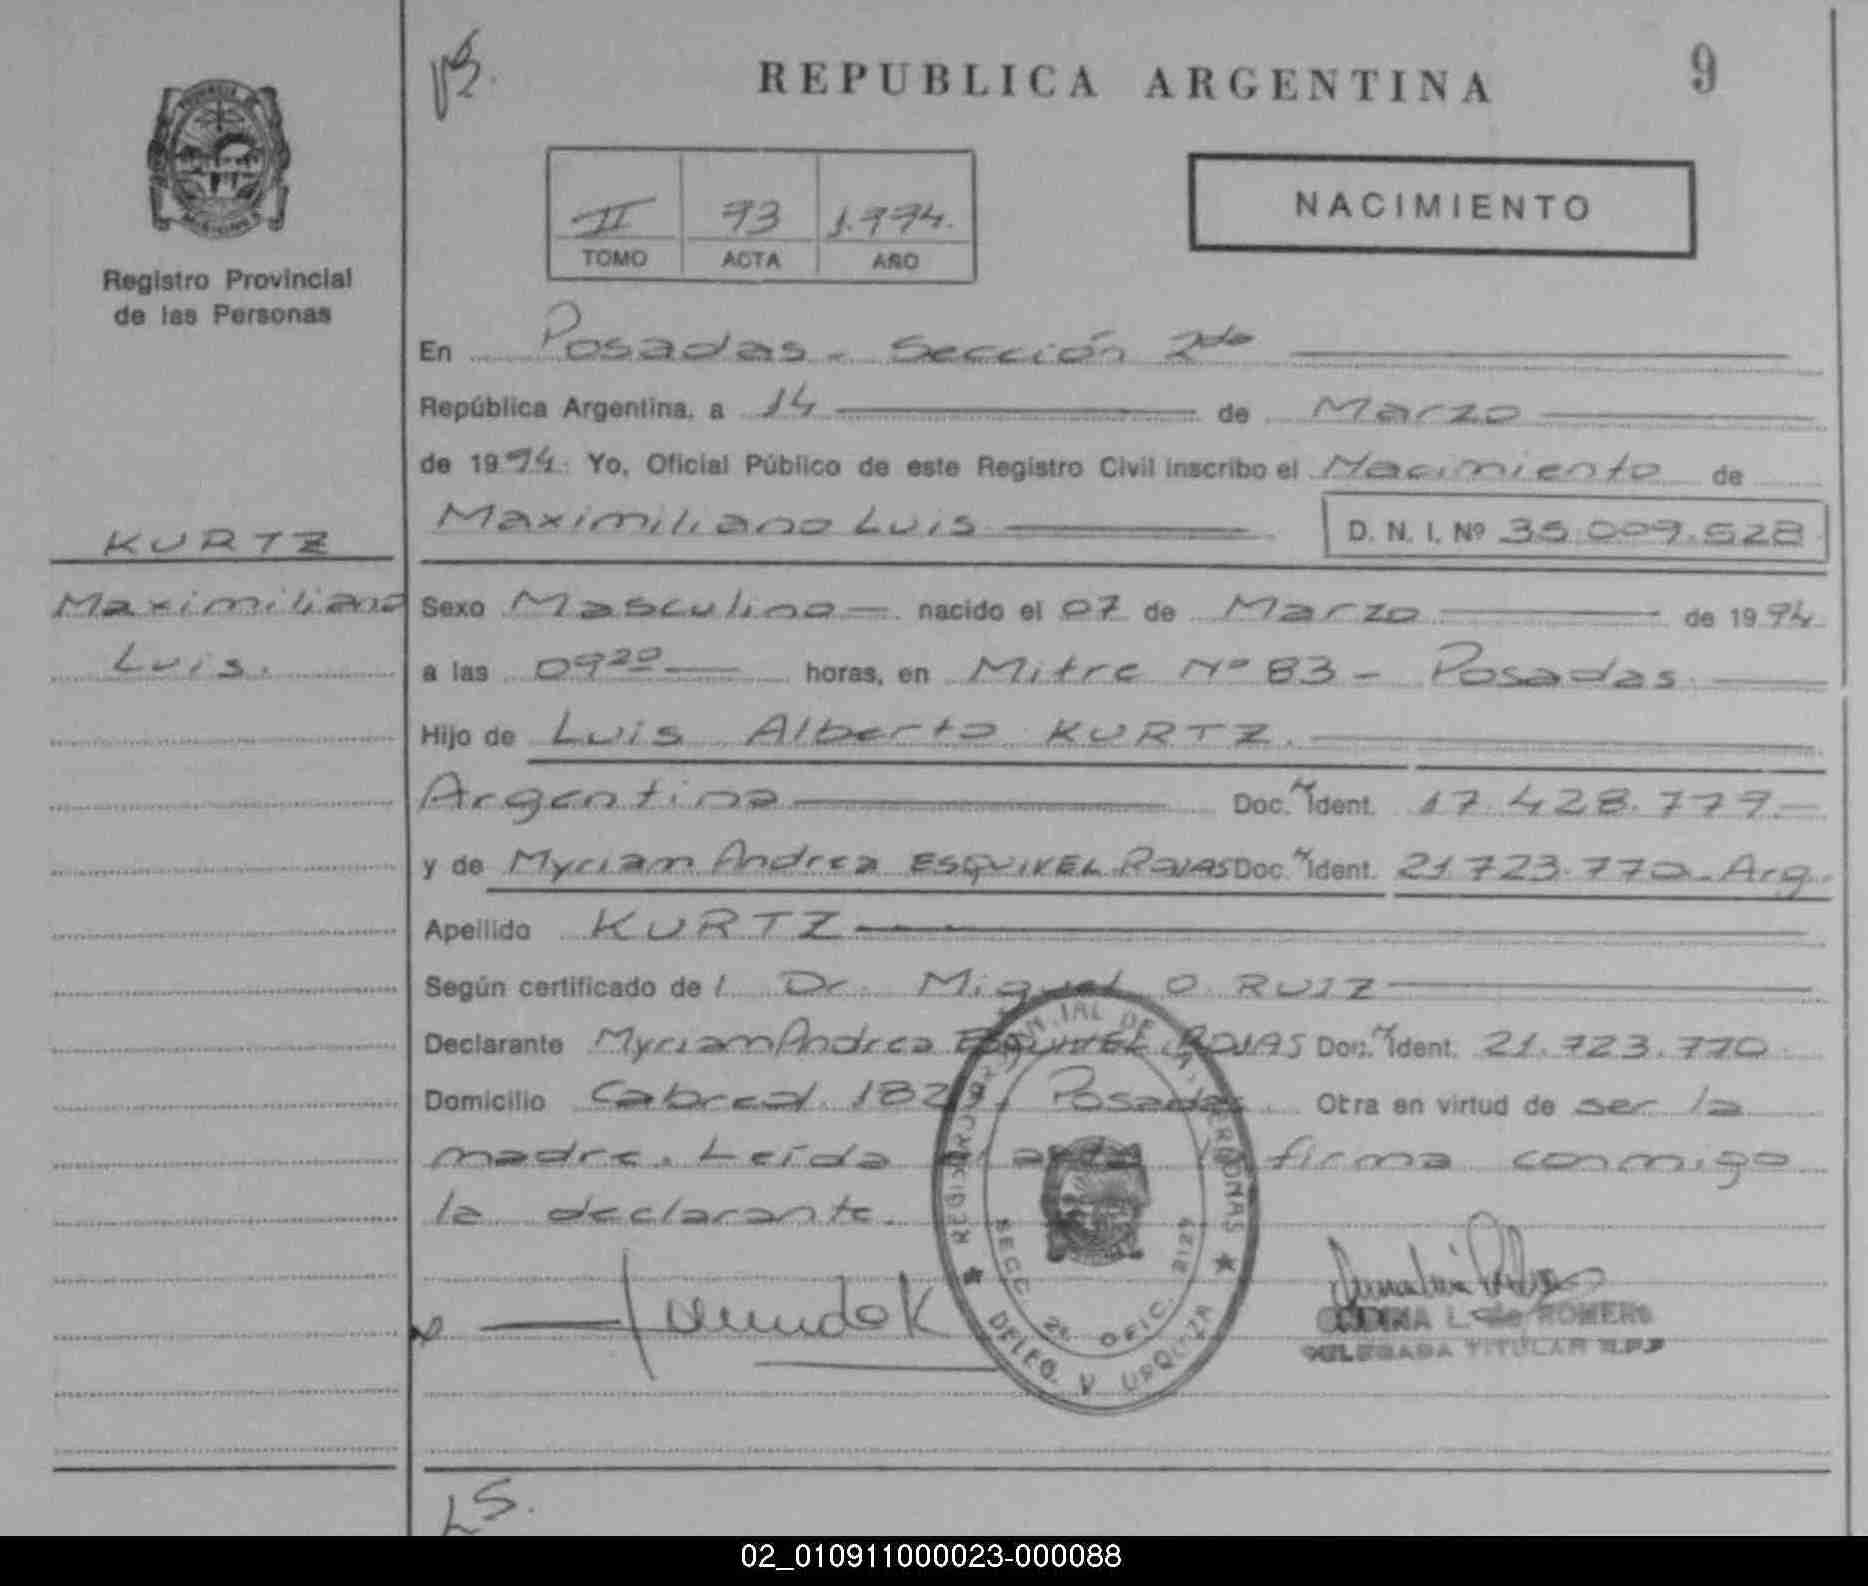 REPUBLICA ARGENTINA
9
Registro Provincial
de las Personas
II 93 1.994.
TOMO ACTA AÑO
NACIMIENTO
En Posadas. Sección 2da
República Argentina, a 14 de Marzo
de 1994. Yo, Oficial Público de este Registro Civil inscribo el Nacimiento de
Maximiliano Luis D. N. I. Nº 35.009.528
KURTZ
Maximiliano
Luis.
Sexo Masculino nacido el 07 de Marzo de 1994
a las 09 20 horas, en Mitre Nº 83 - Posadas.
Hijo de Luis Alberto KURTZ.
Argentina Doc. Ident. 17.428.779.
y de Myriam Andrea ESQUIVEL ROJAS Doc. Ident. 21.723.770. Arg.
Apellido KURTZ
Según certificado de l Dr. Miguel O. RUIZ
Declarante Myriam Andrea ESQUIVEL ROJAS Doc. Ident. 21.723.770
Domicilio Cabred 1829. Posadas Otra en virtud de ser la
madre. Leída el acta la firma conmigo
la declarante.
REGISTRO PROVINCIAL DE LAS PERSONAS
SECC. 2a. OFIC. 2124
DELEG. V URQUIZA
L. de ROMERO
DELEGADA TITULAR R.P.P
LS.
02_010911000023-000088